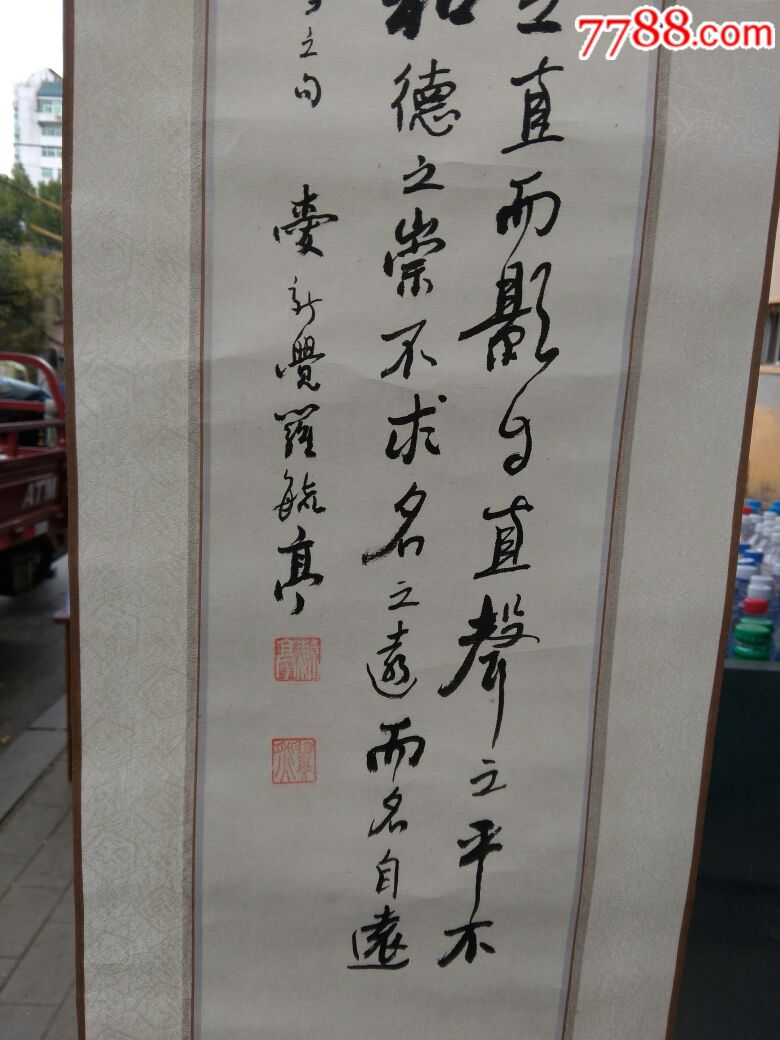 之直而影自直聲之平不
和德之崇不求名之遠而名自遠
之句
愛新覺羅毓亭
7788.com